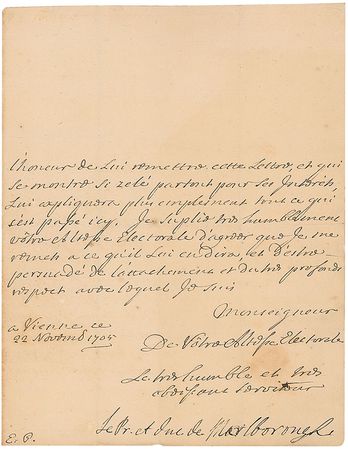 l'honeur de Lui remettre cette Lettre, et qui
se montre si zelé partout pour ses Interets,
Lui expliquera plus amplement tout ce qui
s'est passé icy. Je suplie tres humblement
Vôtre Altesse Electorale d'agréer que Je me
remets a ce qu'il Lui en dira, et d'être
persuadé de l'attachement et du tres profond
respect avec lequel Je suis
Monseigneur
a Vienne ce
22 Novemb 1705
De Vôtre Altesse Electorale
Le tres humble et tres
obeissant serviteur
Le Pr. et Duc de Marlborough
E. P.